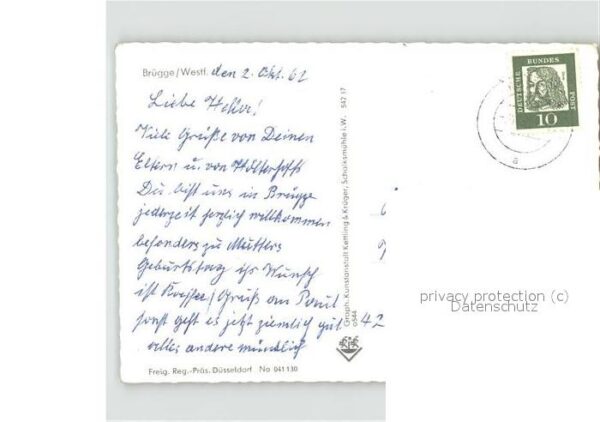 Brügge/Westf. den 2. Okt. 62
Liebe
Viele Grüße von Deinen
Eltern u. von
Du bist uns in Brügge
jederzeit herzlich willkommen
besonders zu Mutters
Geburtstag ihr Wunsch
ist Gruß an Paul
sonst geht es jetzt ziemlich gut
alles andere mündlich
Freig. Reg.-Präs. Düsseldorf No 041 130
Graph. Kunstanstalt Kettling & Krüger, Schalksmühle i. W. 542 17
o544
42
DEUTSCHE BUNDES POST
10
a
privacy protection (c)
Datenschutz